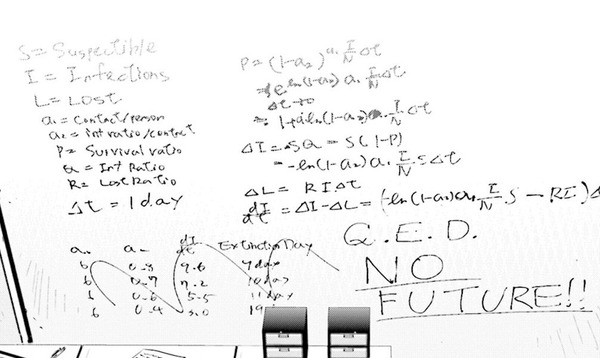 S = Suspectible
I = Infections
L = Lost
a₁ = contact/person
a₂ = int ratio/contact
P = Survival ratio
Q = Int Ratio
R = Lost Ratio
Δt = 1 day
P = (1-a₂)^a₁ I/N Δt
= e^ln(1-a₂) a₁ I/N Δt
Δt→0
= 1+ ln(1-a₂) a₁ I/N Δt
ΔI = SQ = S(1-P)
= -ln(1-a₂)a₁ I/N S Δt
ΔL = RIΔt
dI/dt = ΔI-ΔL = (-ln(1-a₂)a₁ I/N S - RI)Δ
Q.E.D.
NO
FUTURE!!
a₁ a₂ dI/dt Extinction Day
6 0.8 9.6 7 day
6 0.7 7.2 10 day
6 0.6 5.5 11 day
6 0.4 3.0 19